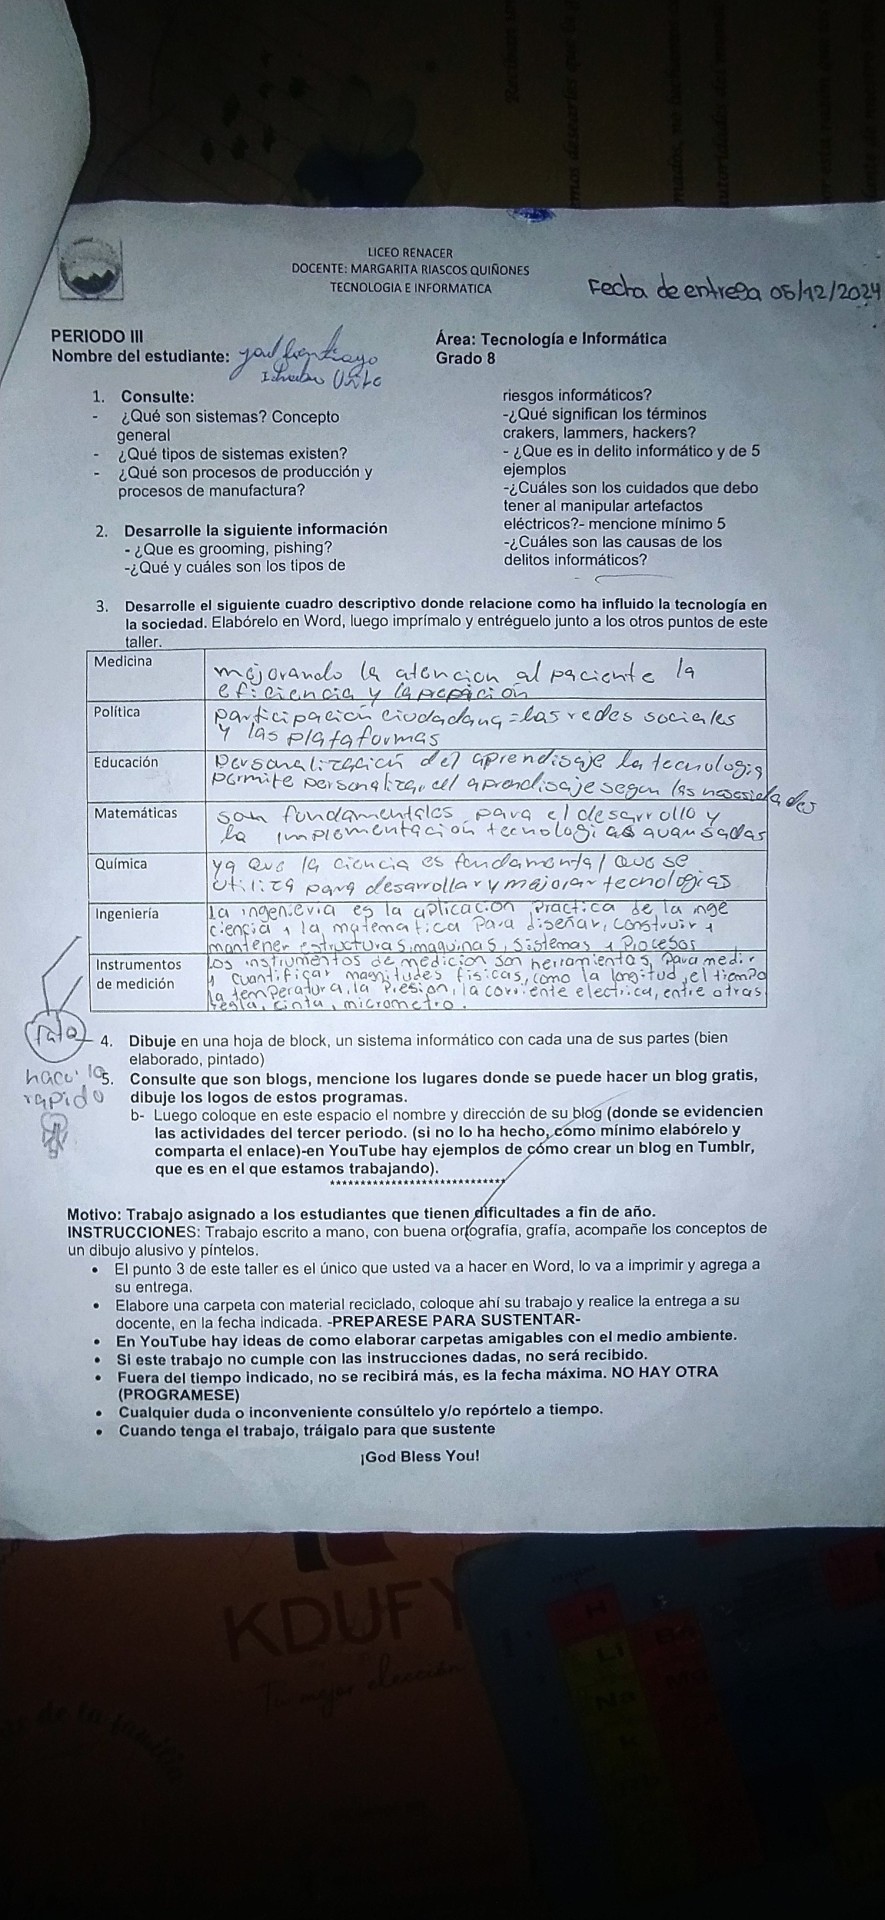 LICEO RENACER
DOCENTE: MARGARITA RIASCOS QUIÑONES
TECNOLOGIA E INFORMATICA
Fecha de entrega 05/12/2024
PERIODO III
Nombre del estudiante:
Área: Tecnología e Informática
Grado 8
1. Consulte:
- ¿Qué son sistemas? Concepto
general
- ¿Qué tipos de sistemas existen?
- ¿Qué son procesos de producción y
procesos de manufactura?
2. Desarrolle la siguiente información
- ¿Que es grooming, pishing?
-¿Qué y cuáles son los tipos de
riesgos informáticos?
-¿Qué significan los términos
crakers, lammers, hackers?
- ¿Que es in delito informático y de 5
ejemplos
-¿Cuáles son los cuidados que debo
tener al manipular artefactos
eléctricos?- mencione mínimo 5
-¿Cuáles son las causas de los
delitos informáticos?
3. Desarrolle el siguiente cuadro descriptivo donde relacione como ha influido la tecnología en
la sociedad. Elabórelo en Word, luego imprímalo y entréguelo junto a los otros puntos de este
taller.
Medicina
mejorando la atencion al paciente la
eficiencia y la
Política
participación ciudadana = las redes sociales
y las plataformas
Educación
Personalización del aprendisaje la tecnologia
permite personalizar el aprendisaje segun las
Matemáticas
son fundamentales para el desarrollo y
la implementación tecnologias avansadas
Química
ya que la ciencia es fundamental que se
utiliza para desarrollar y mejorar tecnologias
Ingeniería
la ingenieria es la aplicacion practica de la inge
ciencia y la matematica para diseñar, construir y
mantener estructuras, maquinas, sistemas y procesos
Instrumentos
de medición
los instrumentos de medicion son herramientas, para medir
y cuantificar magnitudes fisicas, como la longitud, el tiempo
la temperatura, la presion, la corriente electrica, entre otras
regla, cinta, micrometro.
falta
hacerlo
rapido
4. Dibuje en una hoja de block, un sistema informático con cada una de sus partes (bien
elaborado, pintado)
5. Consulte que son blogs, mencione los lugares donde se puede hacer un blog gratis,
dibuje los logos de estos programas.
b- Luego coloque en este espacio el nombre y dirección de su blog (donde se evidencien
las actividades del tercer periodo. (si no lo ha hecho, como mínimo elabórelo y
comparta el enlace)-en YouTube hay ejemplos de cómo crear un blog en Tumblr,
que es en el que estamos trabajando).
*****************************
Motivo: Trabajo asignado a los estudiantes que tienen dificultades a fin de año.
INSTRUCCIONES: Trabajo escrito a mano, con buena ortografía, grafía, acompañe los conceptos de
un dibujo alusivo y píntelos.
• El punto 3 de este taller es el único que usted va a hacer en Word, lo va a imprimir y agrega a
su entrega.
• Elabore una carpeta con material reciclado, coloque ahí su trabajo y realice la entrega a su
docente, en la fecha indicada. -PREPARESE PARA SUSTENTAR-
• En YouTube hay ideas de como elaborar carpetas amigables con el medio ambiente.
• Si este trabajo no cumple con las instrucciones dadas, no será recibido.
• Fuera del tiempo indicado, no se recibirá más, es la fecha máxima. NO HAY OTRA
(PROGRAMESE)
• Cualquier duda o inconveniente consúltelo y/o repórtelo a tiempo.
• Cuando tenga el trabajo, tráigalo para que sustente
¡God Bless You!
KDUFY
Tu mejor elección